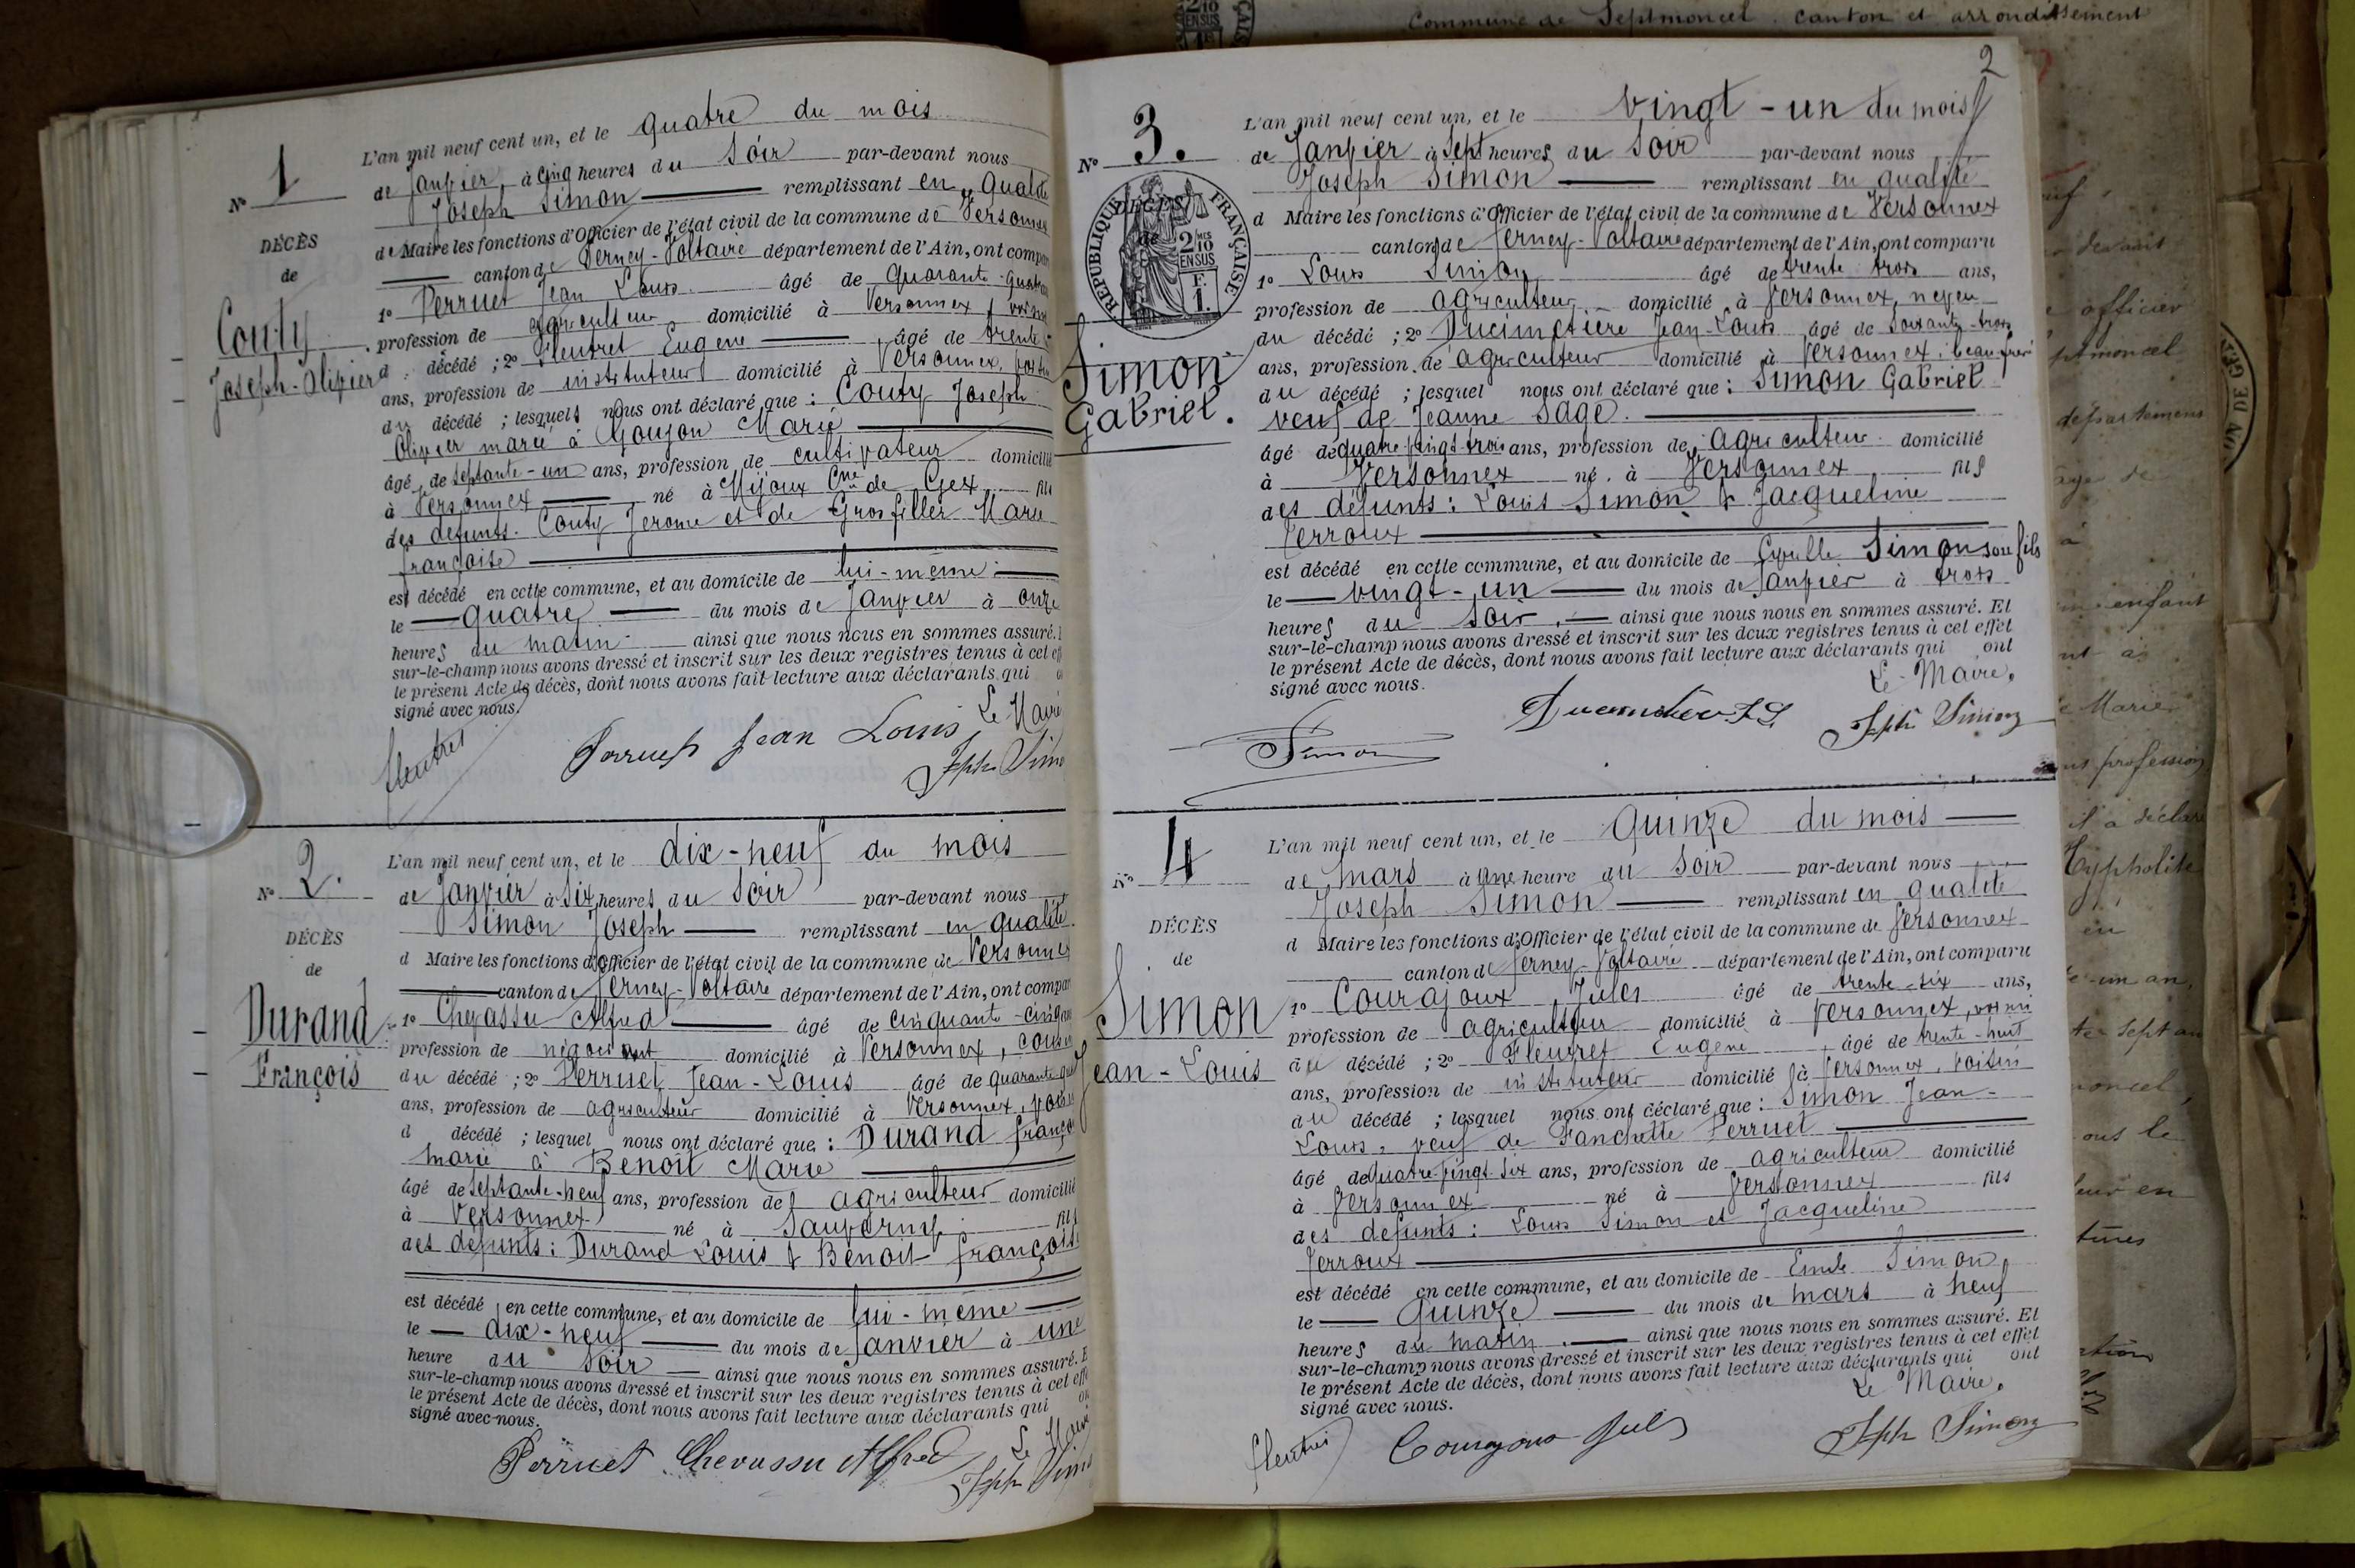 Commune de Septmoncel canton et arrondissement
L'an mil neuf cent un, et le quatre du mois
de Janvier, à cinq heures du Soir par-devant nous
Joseph Simon remplissant en qualité
de Maire les fonctions d'Officier de l'état civil de la commune de Versonnex
canton de Ferney-Voltaire département de l'Ain, ont compar
1° Perruet Jean Louis âgé de quarante-quatre
profession de agriculteur domicilié à Versonnex, voisin
d décédé ; 2° Fleutret Eugene âgé de trente
ans, profession de instituteur domicilié à Versonnex,
du décédé ; lesquels nous ont déclaré que : Couty Joseph
Olivier marié à Goujon Marie
âgé de septante-un ans, profession de cultivateur domicilié
à Versonnex né à Mijoux Cne de Gex fils
des défunts. Couty Jerome et de Grosfiller Marie
françoise
est décédé en cette commune, et au domicile de lui-même
le quatre du mois de Janvier à onze
heures du matin ainsi que nous nous en sommes assuré.
sur-le-champ nous avons dressé et inscrit sur les deux registres tenus à cet eff
le présent Acte de décès, dont nous avons fait lecture aux déclarants qui
signé avec nous.
Le Maire
Perruet Jean Louis
Jph Simo
N° 1
DÉCÈS
de
Couty
Joseph-Olivier
L'an mil neuf cent un, et le dix-neuf du mois
de Janvier à six heures du Soir par-devant nous
Simon Joseph remplissant en qualité
d Maire les fonctions d'Officier de l'état civil de la commune de Versonnex
canton de Ferney-Voltaire département de l'Ain, ont compar
1° Chevassu Alfred âgé de cinquante-cinq
profession de négociant domicilié à Versonnex, cousin
du décédé ; 2° Perruet Jean-Louis âgé de quarante-qua
ans, profession de agriculteur domicilié à Versonnex, voisin
d décédé ; lesquel nous ont déclaré que : Durand franço
marié à Benoit Marie
âgé de septante-neuf ans, profession de agriculteur domicilié
à Versonnex né à Sauverny fils
des défunts : Durand Louis & Benoit françoise
est décédé en cette commune, et au domicile de lui-même
le dix-neuf du mois de Janvier à une
heure du soir ainsi que nous nous en sommes assuré. E
sur-le-champ nous avons dressé et inscrit sur les deux registres tenus à cet effe
le présent Acte de décès, dont nous avons fait lecture aux déclarants qui on
signé avec nous.
Le Maire
Perruet Chevassu Alfred
Jph Simo
N° 2.
DÉCÈS
de
Durand
François
2
L'an mil neuf cent un, et le vingt-un du mois
de Janvier à sept heures du Soir par-devant nous
Joseph Simon remplissant en qualité
d Maire les fonctions d'Officier de l'état civil de la commune de Versonnex
canton de Ferney-Voltaire département de l'Ain, ont comparu
1° Louis Simon âgé de trente trois ans,
profession de agriculteur domicilié à Versonnex, neveu
du décédé ; 2° Ducimetière Jean-Louis âgé de soixante-trois
ans, profession de agriculteur domicilié à Versonnex, beau frère
du décédé ; lesquel nous ont déclaré que : Simon Gabriel
veuf de Jeanne Sage.
âgé de quatre vingt-trois ans, profession de agriculteur domicilié
à Versonnex né à Versonnex fils
des défunts : Louis Simon & Jacqueline
Verroux
est décédé en cette commune, et au domicile de Cyrille Simon son fils
le vingt-un du mois de Janvier à trois
heures du soir. ainsi que nous nous en sommes assuré. Et
sur-le-champ nous avons dressé et inscrit sur les deux registres tenus à cet effet
le présent Acte de décès, dont nous avons fait lecture aux déclarants qui ont
signé avec nous.
Le Maire,
Simon
Jph Simon
N° 3.
DÉCÈS
de
RÉPUBLIQUE FRANÇAISE
2 MES 10
EN SUS
F. 1.
Simon
Gabriel.
L'an mil neuf cent un, et le Quinze du mois
de mars à une heure du soir par-devant nous
Joseph Simon remplissant en qualité
d Maire les fonctions d'Officier de l'état civil de la commune de Versonnex
canton de Ferney-Voltaire département de l'Ain, ont comparu
1° Courajoux Jules âgé de trente-six ans,
profession de agriculteur domicilié à Versonnex, voisin
du décédé ; 2° Fleutret Eugène, âgé de trente-huit
ans, profession de instituteur domicilié à Versonnex, voisin
du décédé ; lesquel nous ont déclaré que : Simon Jean-
Louis, veuf de Fanchette Perruet
âgé de quatre-vingt-six ans, profession de agriculteur domicilié
à Versonnex né à Versonnex fils
des défunts : Louis Simon et Jacqueline
Verroux
est décédé en cette commune, et au domicile de Emile Simon
le Quinze du mois de mars à neuf
heures du matin. ainsi que nous nous en sommes assuré. Et
sur-le-champ nous avons dressé et inscrit sur les deux registres tenus à cet effet
le présent Acte de décès, dont nous avons fait lecture aux déclarants qui ont
signé avec nous.
Le Maire,
Jph Simon
N° 4
DÉCÈS
de
Simon
Jean-Louis
officier
département
enfant
Marie
profession
il a déclaré
Hyppolite